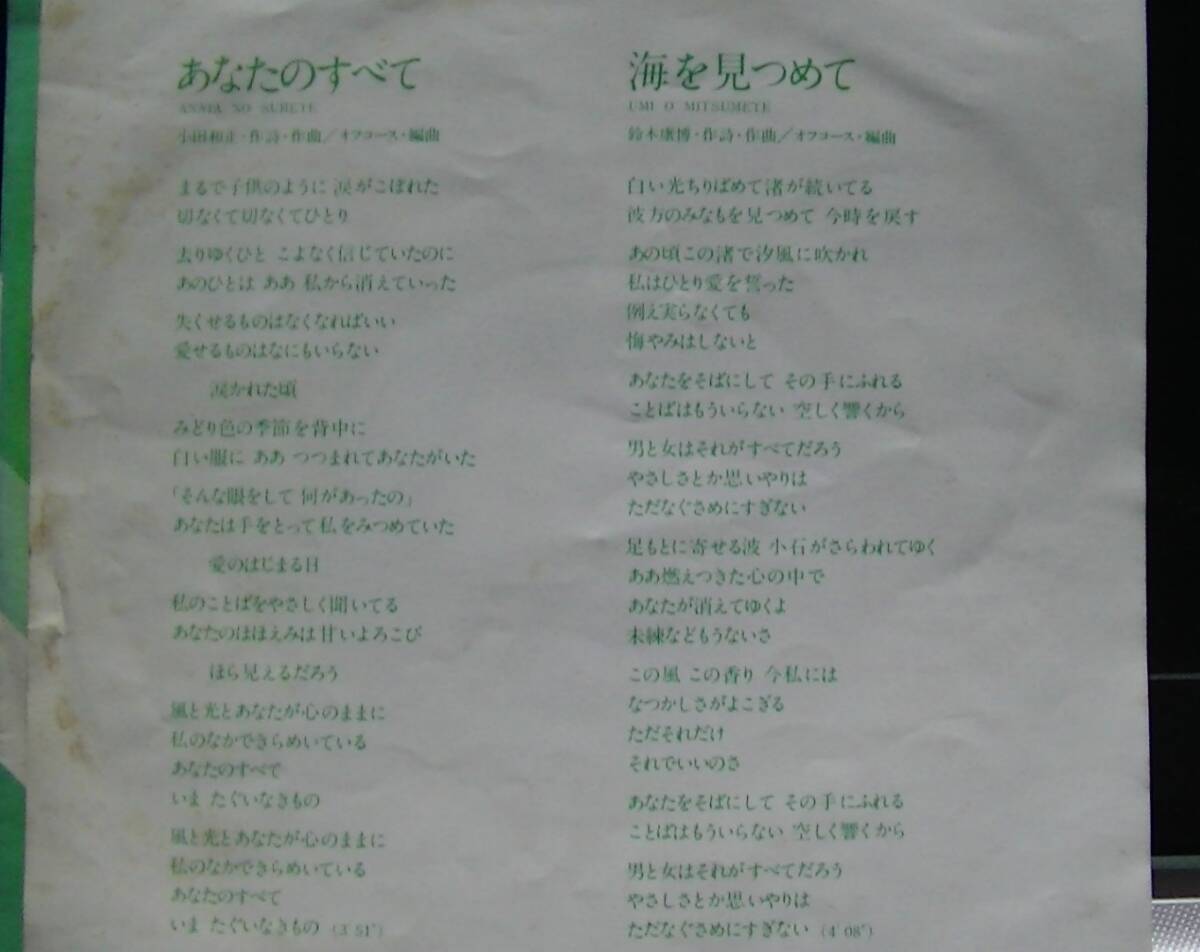 あなたのすべて
ANATA NO SUBETE
小田和正・作詩・作曲／オフコース・編曲
まるで子供のように 涙がこぼれた
切なくて切なくてひとり
去りゆくひと こよなく信じていたのに
あのひとは ああ 私から消えていった
失くせるものはなくなればいい
愛せるものはなにもいらない
涙かれた頃
みどり色の季節を背中に
白い服に ああ つつまれてあなたがいた
「そんな眼をして 何があったの」
あなたは手をとって私をみつめていた
愛のはじまる日
私のことばをやさしく聞いてる
あなたのほほえみは甘いよろこび
ほら見えるだろう
風と光とあなたが心のままに
私のなかできらめいている
あなたのすべて
いま たぐいなきもの
風と光とあなたが心のままに
私のなかできらめいている
あなたのすべて
いま たぐいなきもの (3′51″)
海を見つめて
UMI O MITSUMETE
鈴木康博・作詩・作曲／オフコース・編曲
白い光ちりばめて渚が続いてる
彼方のみなもを見つめて 今時を戻す
あの頃この渚で汐風に吹かれ
私はひとり愛を誓った
例え実らなくても
悔やみはしないと
あなたをそばにして その手にふれる
ことばはもういらない 空しく響くから
男と女はそれがすべてだろう
やさしさとか思いやりは
ただなぐさめにすぎない
足もとに寄せる波 小石がさらわれてゆく
ああ燃えつきた心の中で
あなたが消えてゆくよ
未練などもうないさ
この風 この香り 今私には
なつかしさがよこぎる
ただそれだけ
それでいいのさ
あなたをそばにして その手にふれる
ことばはもういらない 空しく響くから
男と女はそれがすべてだろう
やさしさとか思いやりは
ただなぐさめにすぎない (4′08″)